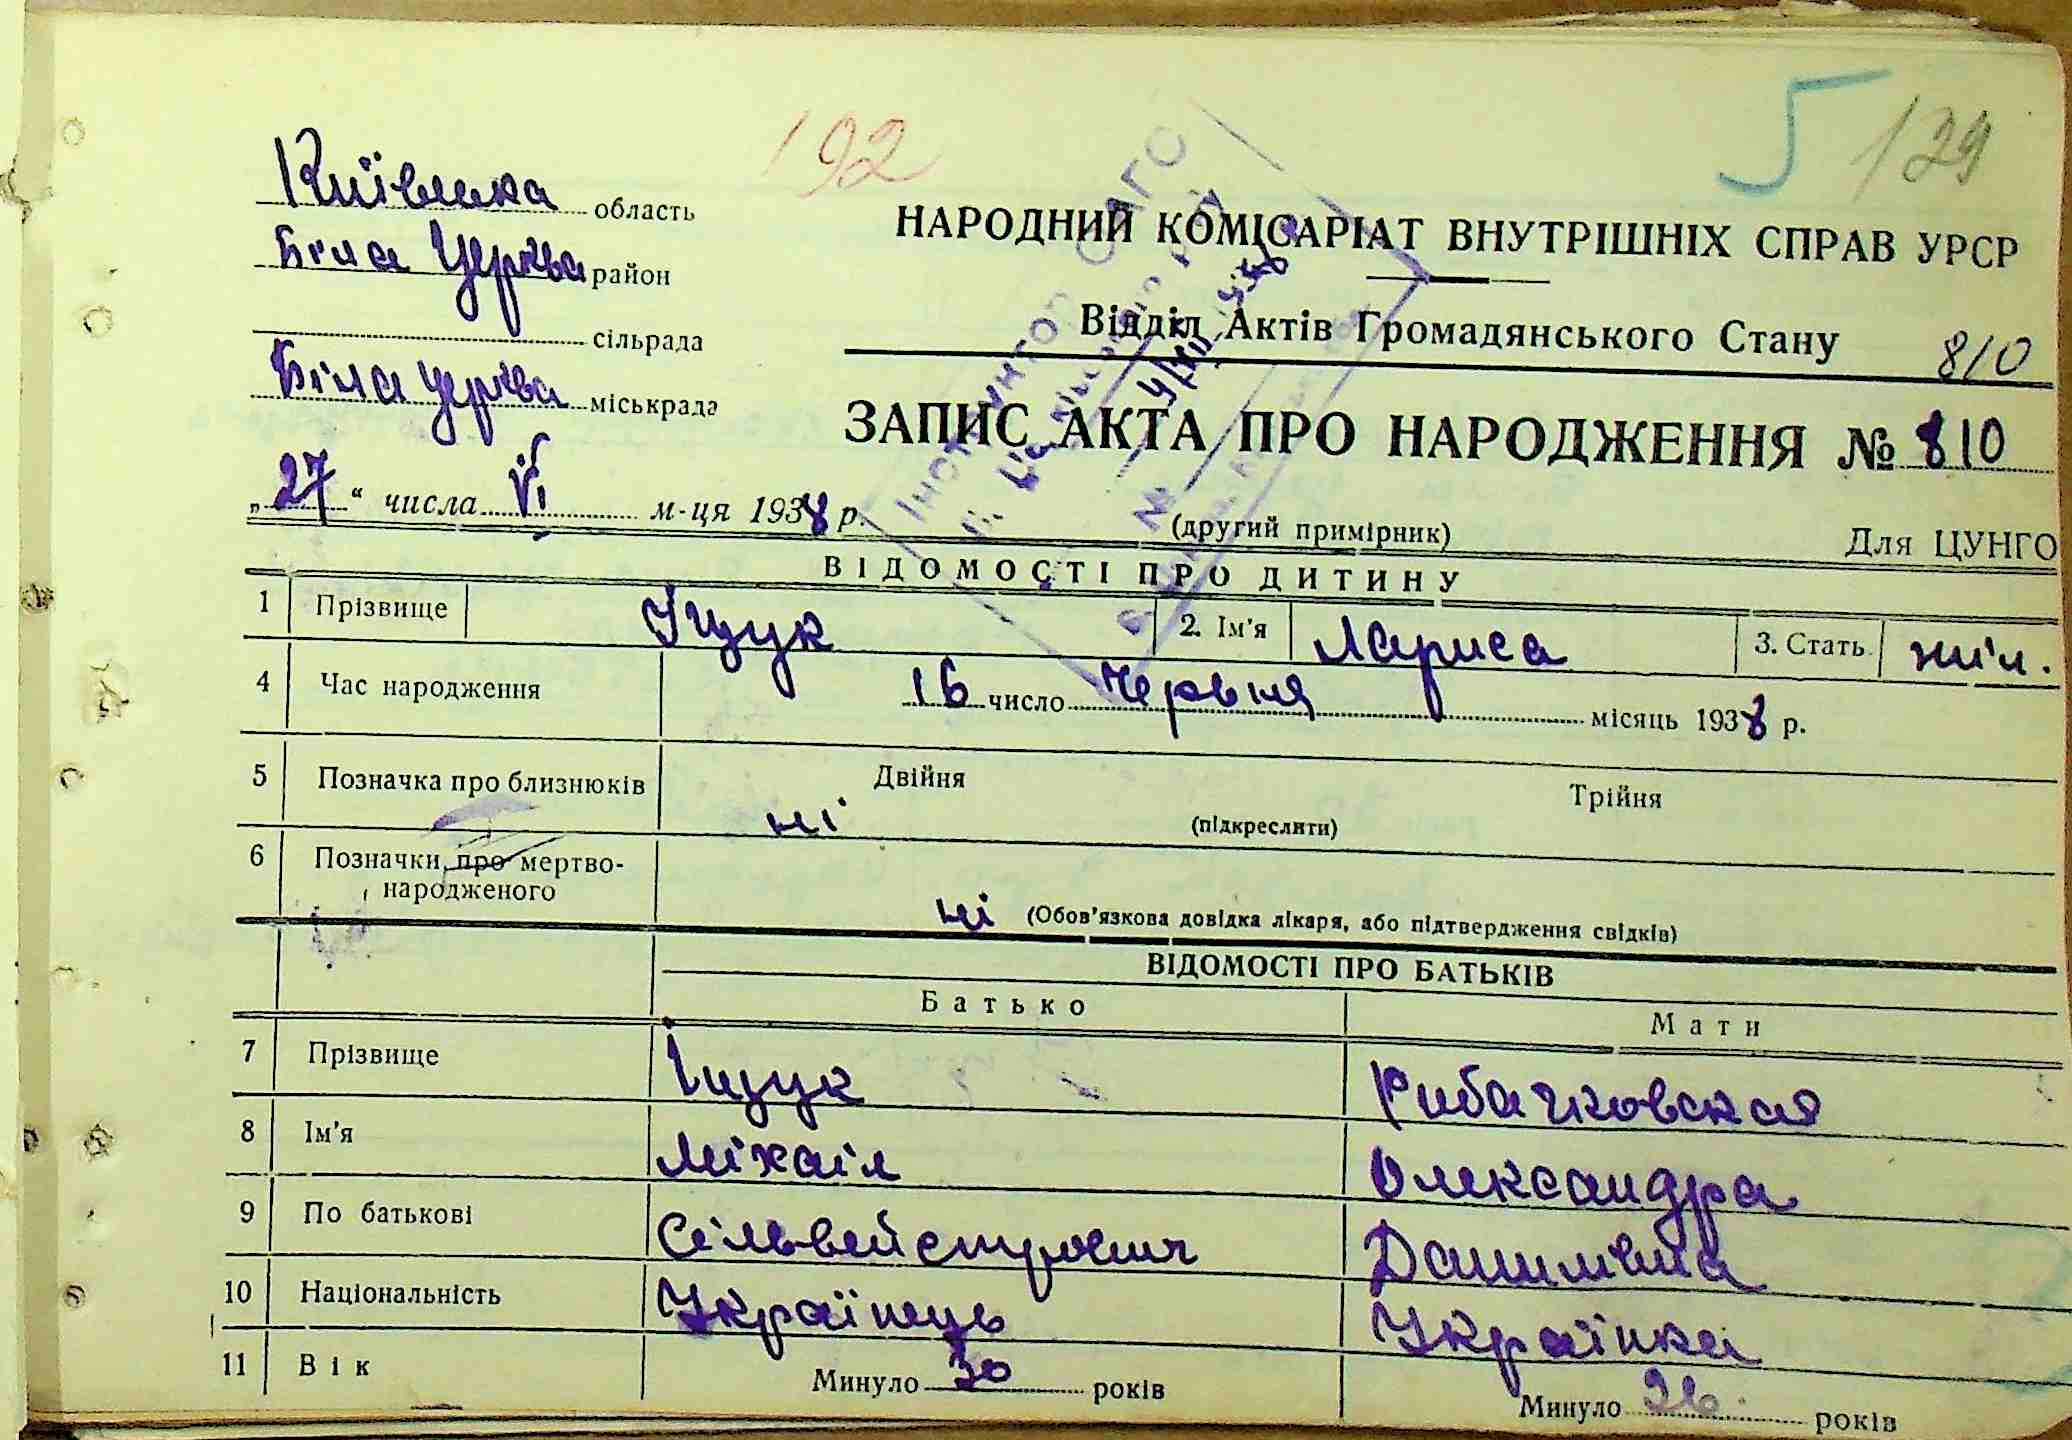 192
5
129
Київська область
Біла Церква район
сільрада
Біла Церква міськрада
„27“ числа VI м-ця 1938 р.
НАРОДНИЙ КОМІСАРІАТ ВНУТРІШНІХ СПРАВ УРСР
Відділ Актів Громадянського Стану
810
ЗАПИС АКТА ПРО НАРОДЖЕННЯ № 810
(другий примірник)
Для ЦУНГО
ВІДОМОСТІ ПРО ДИТИНУ
1 Прізвище Іщук 2. Ім'я Лариса 3. Стать жін.
4 Час народження 16 число Червня місяць 1938 р.
5 Позначка про близнюків Двійня Трійня
ні (підкреслити)
6 Позначки про мертво-
народженого
ні (Обов'язкова довідка лікаря, або підтвердження свідків)
ВІДОМОСТІ ПРО БАТЬКІВ
Батько Мати
7 Прізвище Іщук Рибачковская
8 Ім'я Міхаіл Олександра
9 По батькові Сільвейстрович Данилівна
10 Національність Українець Українка
11 Вік Минуло 30 років Минуло 26 років